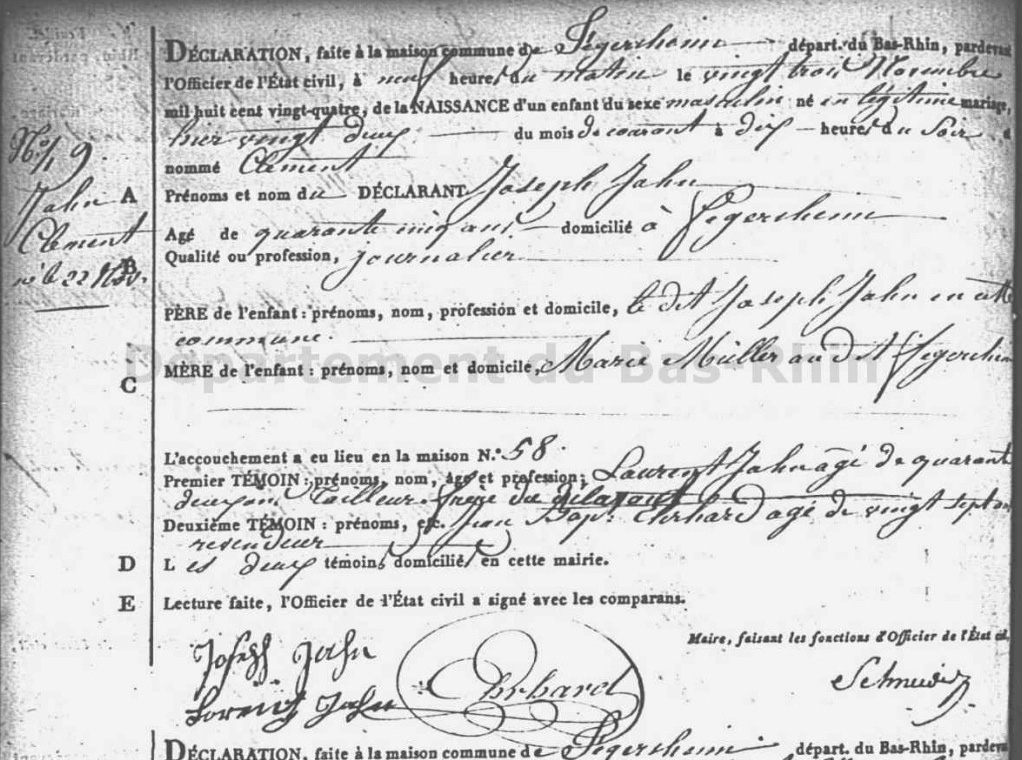 DÉCLARATION, faite à la maison commune de Fegersheim départ. du Bas-Rhin, pardevant
l'Officier de l'État civil, à neuf heures du matin le vingt trois Novembre
mil huit cent vingt-quatre, de la NAISSANCE d'un enfant du sexe masculin né en légitime mariage,
hier vingt deux du mois de courant à dix heures du Soir, et
nommé Clément
No. 19
Jahn
Clement
né le 22 Nov.
A Prénoms et nom du DÉCLARANT Joseph Jahn
Agé de quarante cinq ans domicilié à Fegersheim
B Qualité ou profession, journalier
PÈRE de l'enfant : prénoms, nom, profession et domicile, le dit Joseph Jahn en cette
commune.
C MÈRE de l'enfant : prénoms, nom et domicile, Marie Müller au dit Fegersheim
Département du Bas-Rhin
L'accouchement a eu lieu en la maison N.° 58.
Premier TÉMOIN : prénoms, nom, âge et profession; Laurent Jahn âgé de quarante
deux ans Tailleur frere du déclarant
Deuxième TÉMOIN : prénoms, etc. Jean Bapt. Ehrhard agé de vingt sept ans
revendeur
D Les deux témoins domiciliés en cette mairie.
E Lecture faite, l'Officier de l'État civil a signé avec les comparans.
Maire, faisant les fonctions d'Officier de l'État civil,
Joseph Jahn
Lorentz Jahn
Ehrhard
DÉCLARATION, faite à la maison commune de Fegersheim, départ. du Bas-Rhin, pardevant